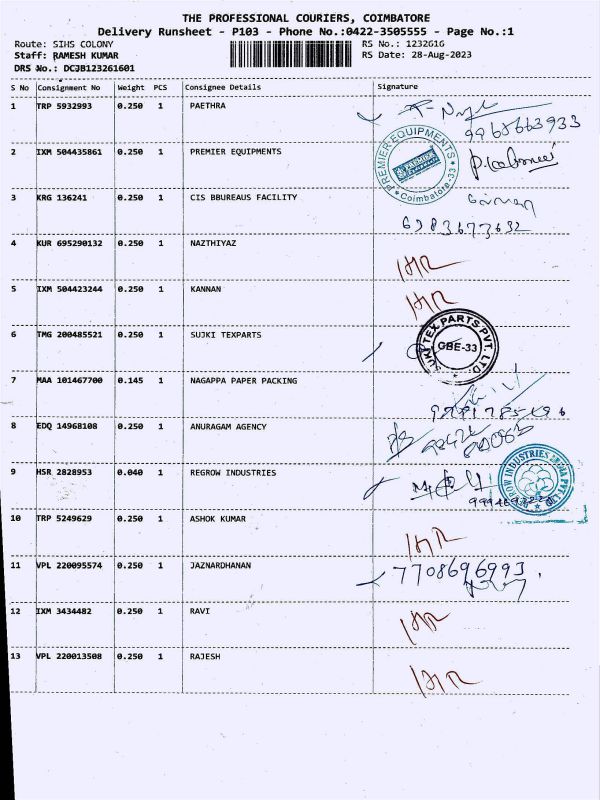 THE PROFESSIONAL COURIERS, COIMBATORE
Delivery Runsheet - P103 - Phone No.:0422-3505555 - Page No.:1
Route: SIHS COLONY RS No.: 1232616
Staff: RAMESH KUMAR RS Date: 28-Aug-2023
DRS No.: DCJB123261601
S No Consignment No Weight PCS Consignee Details Signature
1 TRP 5932993 0.250 1 PAETHRA
9968663933
2 IXM 504435861 0.250 1 PREMIER EQUIPMENTS
PREMIER EQUIPMENTS Coimbatore-33
3 KRG 136241 0.250 1 CIS BBUREAUS FACILITY
6383673632
4 KUR 695290132 0.250 1 NAZTHIYAZ
5 IXM 504423244 0.250 1 KANNAN
6 TMG 200485521 0.250 1 SUJKI TEXPARTS
SUKI TEX PARTS PVT. LTD. CBE-33
7 MAA 101467700 0.145 1 NAGAPPA PAPER PACKING
8 EDQ 14968108 0.250 1 ANURAGAM AGENCY
9 HSR 2828953 0.040 1 REGROW INDUSTRIES
REGROW INDUSTRIES INDIA PVT LTD
10 TRP 5249629 0.250 1 ASHOK KUMAR
11 VPL 220095574 0.250 1 JAZNARDHANAN
7708696993
12 IXM 3434482 0.250 1 RAVI
13 VPL 220013508 0.250 1 RAJESH